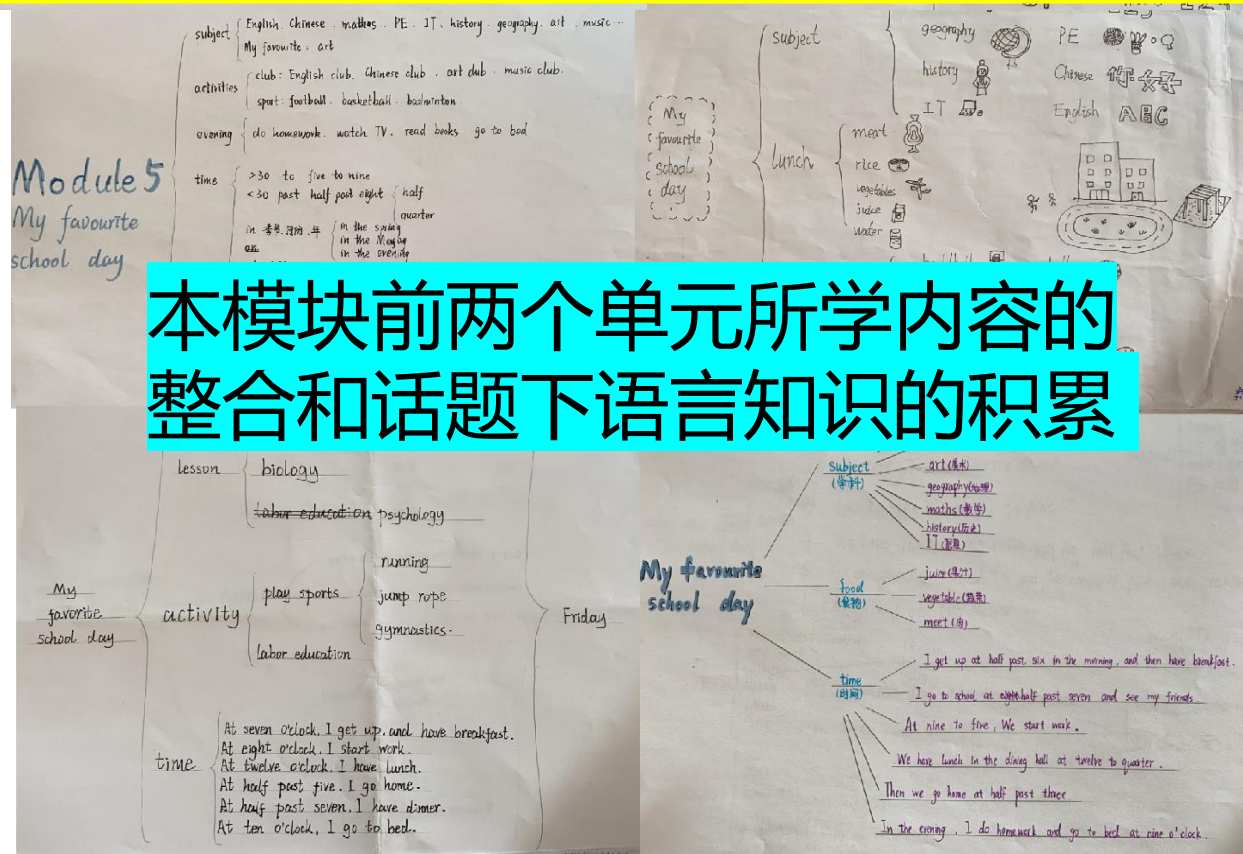 subject
English. Chinese. mathos. PE. IT. history. geography. art. music...
My favourite. art
activities
club: English club. Chinese club. art dub. music club.
sport: football. basketball. badminton.
evening
do homework. watch TV. read books. go to bed
Module 5
My favourite
school day
time
>30 to five to nine
<30 past half past eight
half
quarter
in 季节.月份.年
on
in the spring
in the evening
My
favourite
school
day
subject
geography
PE
history
Chinese 你好
IT
English ABC
lunch
meat
rice
vegetables
juice
water
本模块前两个单元所学内容的
整合和话题下语言知识的积累
My
favorite
school day
lesson
biology
labor education psychology
activity
play sports
running
jump rope
gymnastics.
labor education
Friday
time
At seven o'clock, I get up, and have breakfast.
At eight o'clock, I start work.
At twelve o'clock, I have lunch.
At half past five. I go home.
At half past seven. I have dinner.
At ten o'clock, I go to bed.
My favourite
school day
Subject
(学科)
art(美术)
geography(地理)
maths(数学)
history(历史)
IT
food
(食物)
juice(果汁)
vegetable(蔬菜)
meet(肉)
time
(时间)
I get up at half past six in the morning, and then have breakfast.
I go to school at half past seven and see my friends.
At nine to five, We start work.
We have lunch in the dining hall at twelve to quarter.
Then we go home at half past three
In the evening, I do homework and go to bed at nine o'clock.